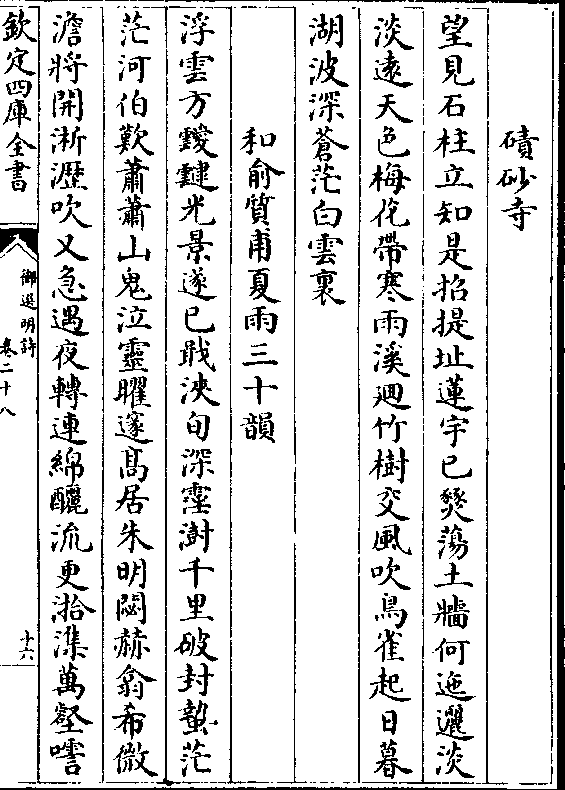 磧砂寺
望見石柱立知是招提址蓮宇已燹蕩土牆何迤邐淡
淡遠天色梅花帶寒雨溪廽竹樹交風吹鳥雀起日暮
湖波深蒼茫白雲裏
和俞質甫夏雨三十韻
浮雲方靉靆光景遂已戢浹旬深霔澍千里破封蟄茫
茫河伯歎蕭蕭山鬼泣靈曜邃髙居朱明閟赫翕希微
澹將開淅瀝吹又急遇夜轉連綿釃流更湁潗萬壑噾
欽定四庫全書
御選明詩
卷二十八
十六